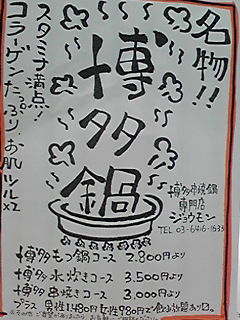 名物!!
博多鍋
スタミナ満点!
コラーゲンたっぷり、お肌ツルx2
博多串焼鍋
専門店
ジョウモン
TEL 03-6416-1633
博多もつ鍋コース 2,800円より
博多水炊きコース 3,500円より
博多串焼きコース 3,000円より
プラス 男性1480円女性980円で飲み放題あり